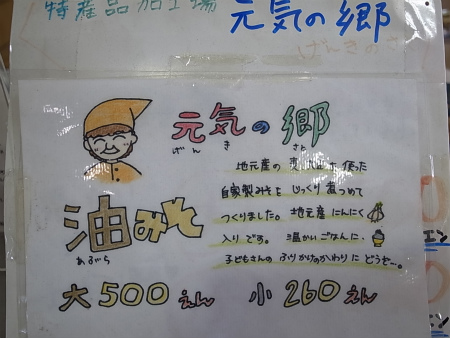 特産品加工場
元気の郷
げんきのさ
元気の郷
げんき さと
地元産の 使った
自家製みそを じっくり煮つめて
つくりました。地元産にんにく
入りです。温かいごはんに、
子どもさんのふりかけのかわりにどうぞ〜。
油みそ
あぶら
大500えん 小260えん
エン
エン